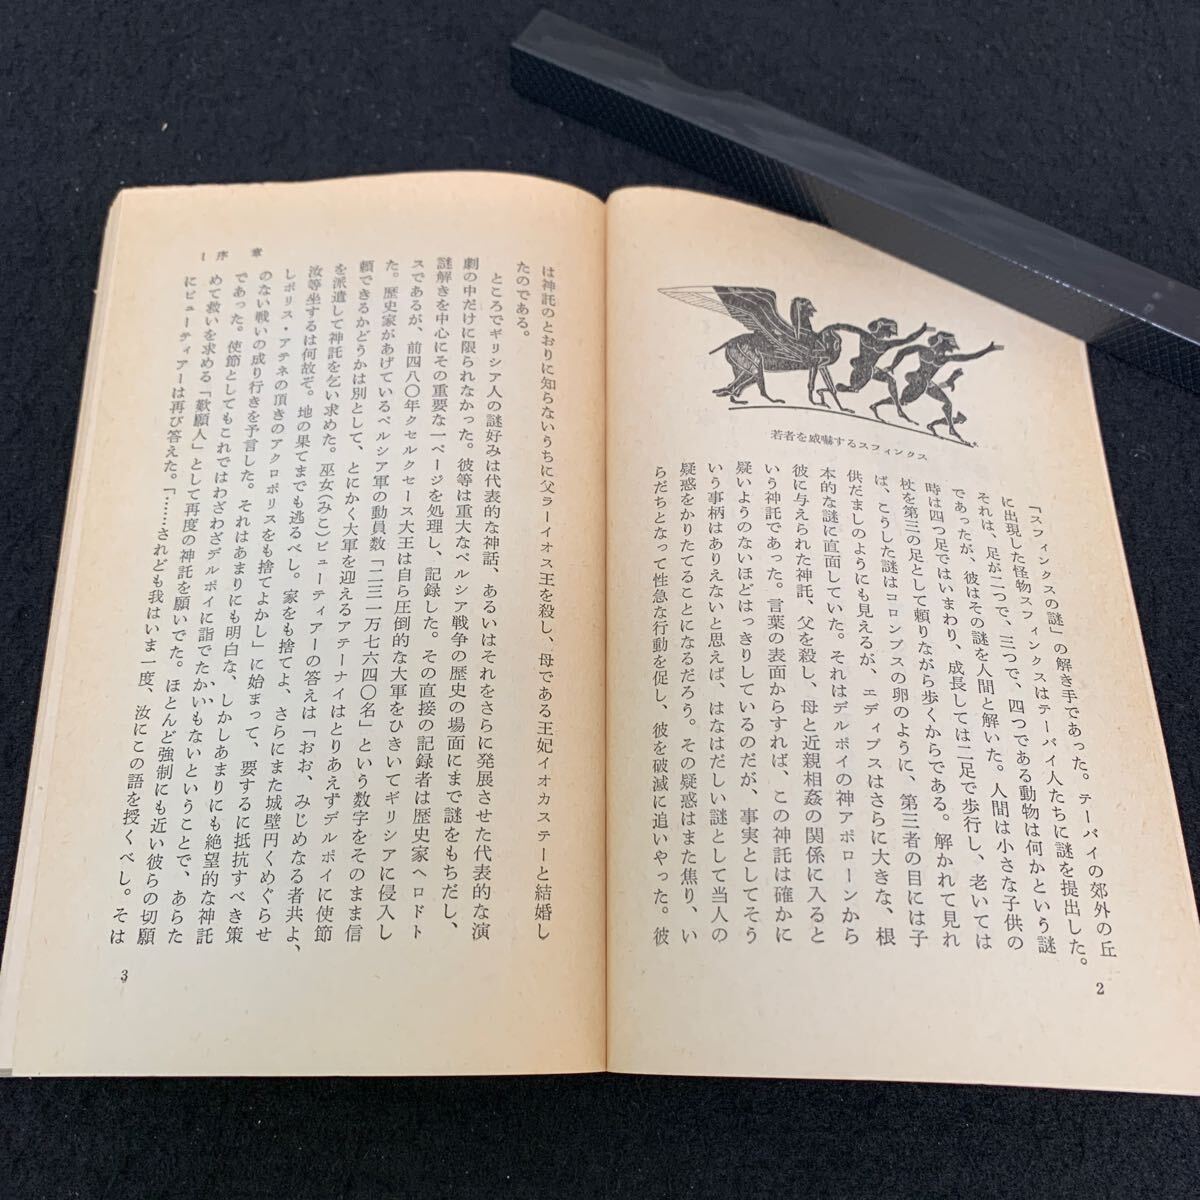 若者を威嚇するスフィンクス
「スフィンクスの謎」の解き手であった。テーバイの郊外の丘
に出現した怪物スフィンクスはテーバイ人たちに謎を提出した。
それは、足が二つで、三つで、四つである動物は何かという謎
であったが、彼はその謎を人間と解いた。人間は小さな子供の
時は四つ足ではいまわり、成長しては二足で歩行し、老いては
杖を第三の足として頼りながら歩くからである。解かれて見れ
ば、こうした謎はコロンブスの卵のように、第三者の目には子
供だましのようにも見えるが、エディプスはさらに大きな、根
本的な謎に直面していた。それはデルポイの神アポローンから
彼に与えられた神託、父を殺し、母と近親相姦の関係に入ると
いう神託であった。言葉の表面からすれば、この神託は確かに
疑いようのないほどはっきりしているのだが、事実としてそう
いう事柄はありえないと思えば、はなはだしい謎として当人の
疑惑をかりたてることになるだろう。その疑惑はまた焦り、い
らだちとなって性急な行動を促し、彼を破滅に追いやった。彼
2
は神託のとおりに知らないうちに父ラーイオス王を殺し、母である王妃イオカステーと結婚し
たのである。
ところでギリシア人の謎好みは代表的な神話、あるいはそれをさらに発展させた代表的な演
劇の中だけに限られなかった。彼等は重大なペルシア戦争の歴史の場面にまで謎をもちだし、
謎解きを中心にその重要な一ページを処理し、記録した。その直接の記録者は歴史家ヘロドト
スであるが、前四八〇年クセルクセース大王は自ら圧倒的な大軍をひきいてギリシアに侵入し
た。歴史家があげているペルシア軍の動員数「二三一万七六四〇名」という数字をそのまま信
頼できるかどうかは別として、とにかく大軍を迎えるアテーナイはとりあえずデルポイに使節
を派遣して神託を乞い求めた。巫女(みこ)ピューティアーの答えは「おお、みじめなる者共よ、
汝等坐するは何故ぞ。地の果てまでも逃るべし。家をも捨てよ、さらにまた城壁円くめぐらせ
しポリス・アテネの頂きのアクロポリスをも捨てよかし」に始まって、要するに抵抗すべき策
のない戦いの成り行きを予言した。それはあまりにも明白な、しかしあまりにも絶望的な神託
であった。使節としてもこれではわざわざデルポイに詣でたかいもないということで、あらた
めて救いを求める「歎願人」として再度の神託を願いでた。ほとんど強制にも近い彼らの切願
にピューティアーは再び答えた。「……されども我はいま一度、汝にこの語を授くべし。そは
1 序 章
3